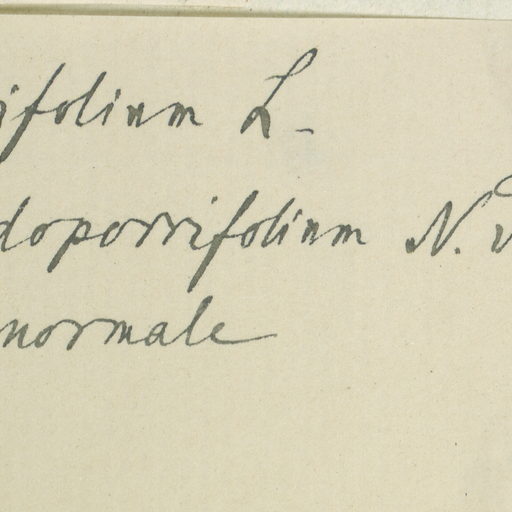 ifolium L.
doporrifolium N.
normale